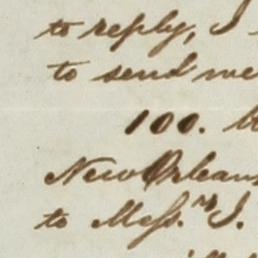 to reply, I
to send me
100.
New Orleans
to Mess.rs J.